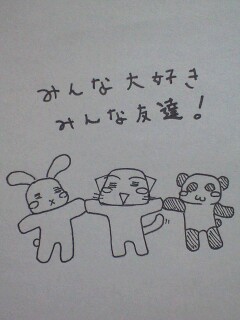 みんな大好き
みんな友達!